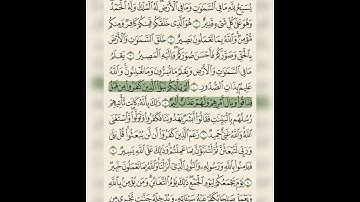 يُسَبِّحُ لِلَّهِ مَا فِي السَّمَاوَاتِ وَمَا فِي الْأَرْضِ لَهُ الْمُلْكُ وَلَهُ الْحَمْدُ
وَهُوَ عَلَىٰ كُلِّ شَيْءٍ قَدِيرٌ ۝ هُوَ الَّذِي خَلَقَكُمْ فَمِنكُمْ كَافِرٌ وَمِنكُم
مُّؤْمِنٌ وَاللَّهُ بِمَا تَعْمَلُونَ بَصِيرٌ ۝ خَلَقَ السَّمَاوَاتِ وَالْأَرْضَ
بِالْحَقِّ وَصَوَّرَكُمْ فَأَحْسَنَ صُوَرَكُمْ وَإِلَيْهِ الْمَصِيرُ ۝ يَعْلَمُ
مَا فِي السَّمَاوَاتِ وَالْأَرْضِ وَيَعْلَمُ مَا تُسِرُّونَ وَمَا تُعْلِنُونَ وَاللَّهُ
عَلِيمٌ بِذَاتِ الصُّدُورِ ۝ أَلَمْ يَأْتِكُمْ نَبَأُ الَّذِينَ كَفَرُوا مِن قَبْلُ
فَذَاقُوا وَبَالَ أَمْرِهِمْ وَلَهُمْ عَذَابٌ أَلِيمٌ ۝ ذَٰلِكَ بِأَنَّهُ كَانَت تَّأْتِيهِمْ
رُسُلُهُم بِالْبَيِّنَاتِ فَقَالُوا أَبَشَرٌ يَهْدُونَنَا فَكَفَرُوا وَتَوَلَّوا وَّاسْتَغْنَى
اللَّهُ وَاللَّهُ غَنِيٌّ حَمِيدٌ ۝ زَعَمَ الَّذِينَ كَفَرُوا أَن لَّن يُبْعَثُوا قُلْ بَلَىٰ
وَرَبِّي لَتُبْعَثُنَّ ثُمَّ لَتُنَبَّؤُنَّ بِمَا عَمِلْتُمْ وَذَٰلِكَ عَلَى اللَّهِ يَسِيرٌ ۝
فَآمِنُوا بِاللَّهِ وَرَسُولِهِ وَالنُّورِ الَّذِي أَنزَلْنَا وَاللَّهُ بِمَا تَعْمَلُونَ خَبِيرٌ
۝ يَوْمَ يَجْمَعُكُمْ لِيَوْمِ الْجَمْعِ ذَٰلِكَ يَوْمُ التَّغَابُنِ وَمَن يُؤْمِن بِاللَّهِ
وَيَعْمَلْ صَالِحًا يُكَفِّرْ عَنْهُ سَيِّئَاتِهِ وَيُدْخِلْهُ جَنَّاتٍ تَجْرِي مِن